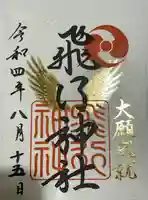 大願成就
飛行神社
令和四年八月十五日